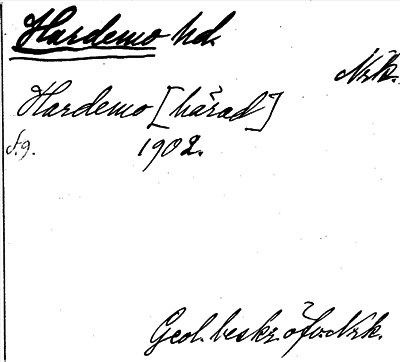 Hardemo hd.
Nrk.
Hardemo [härad]
f.g. 1902.
Geol. beskr. öfv. Nrk.